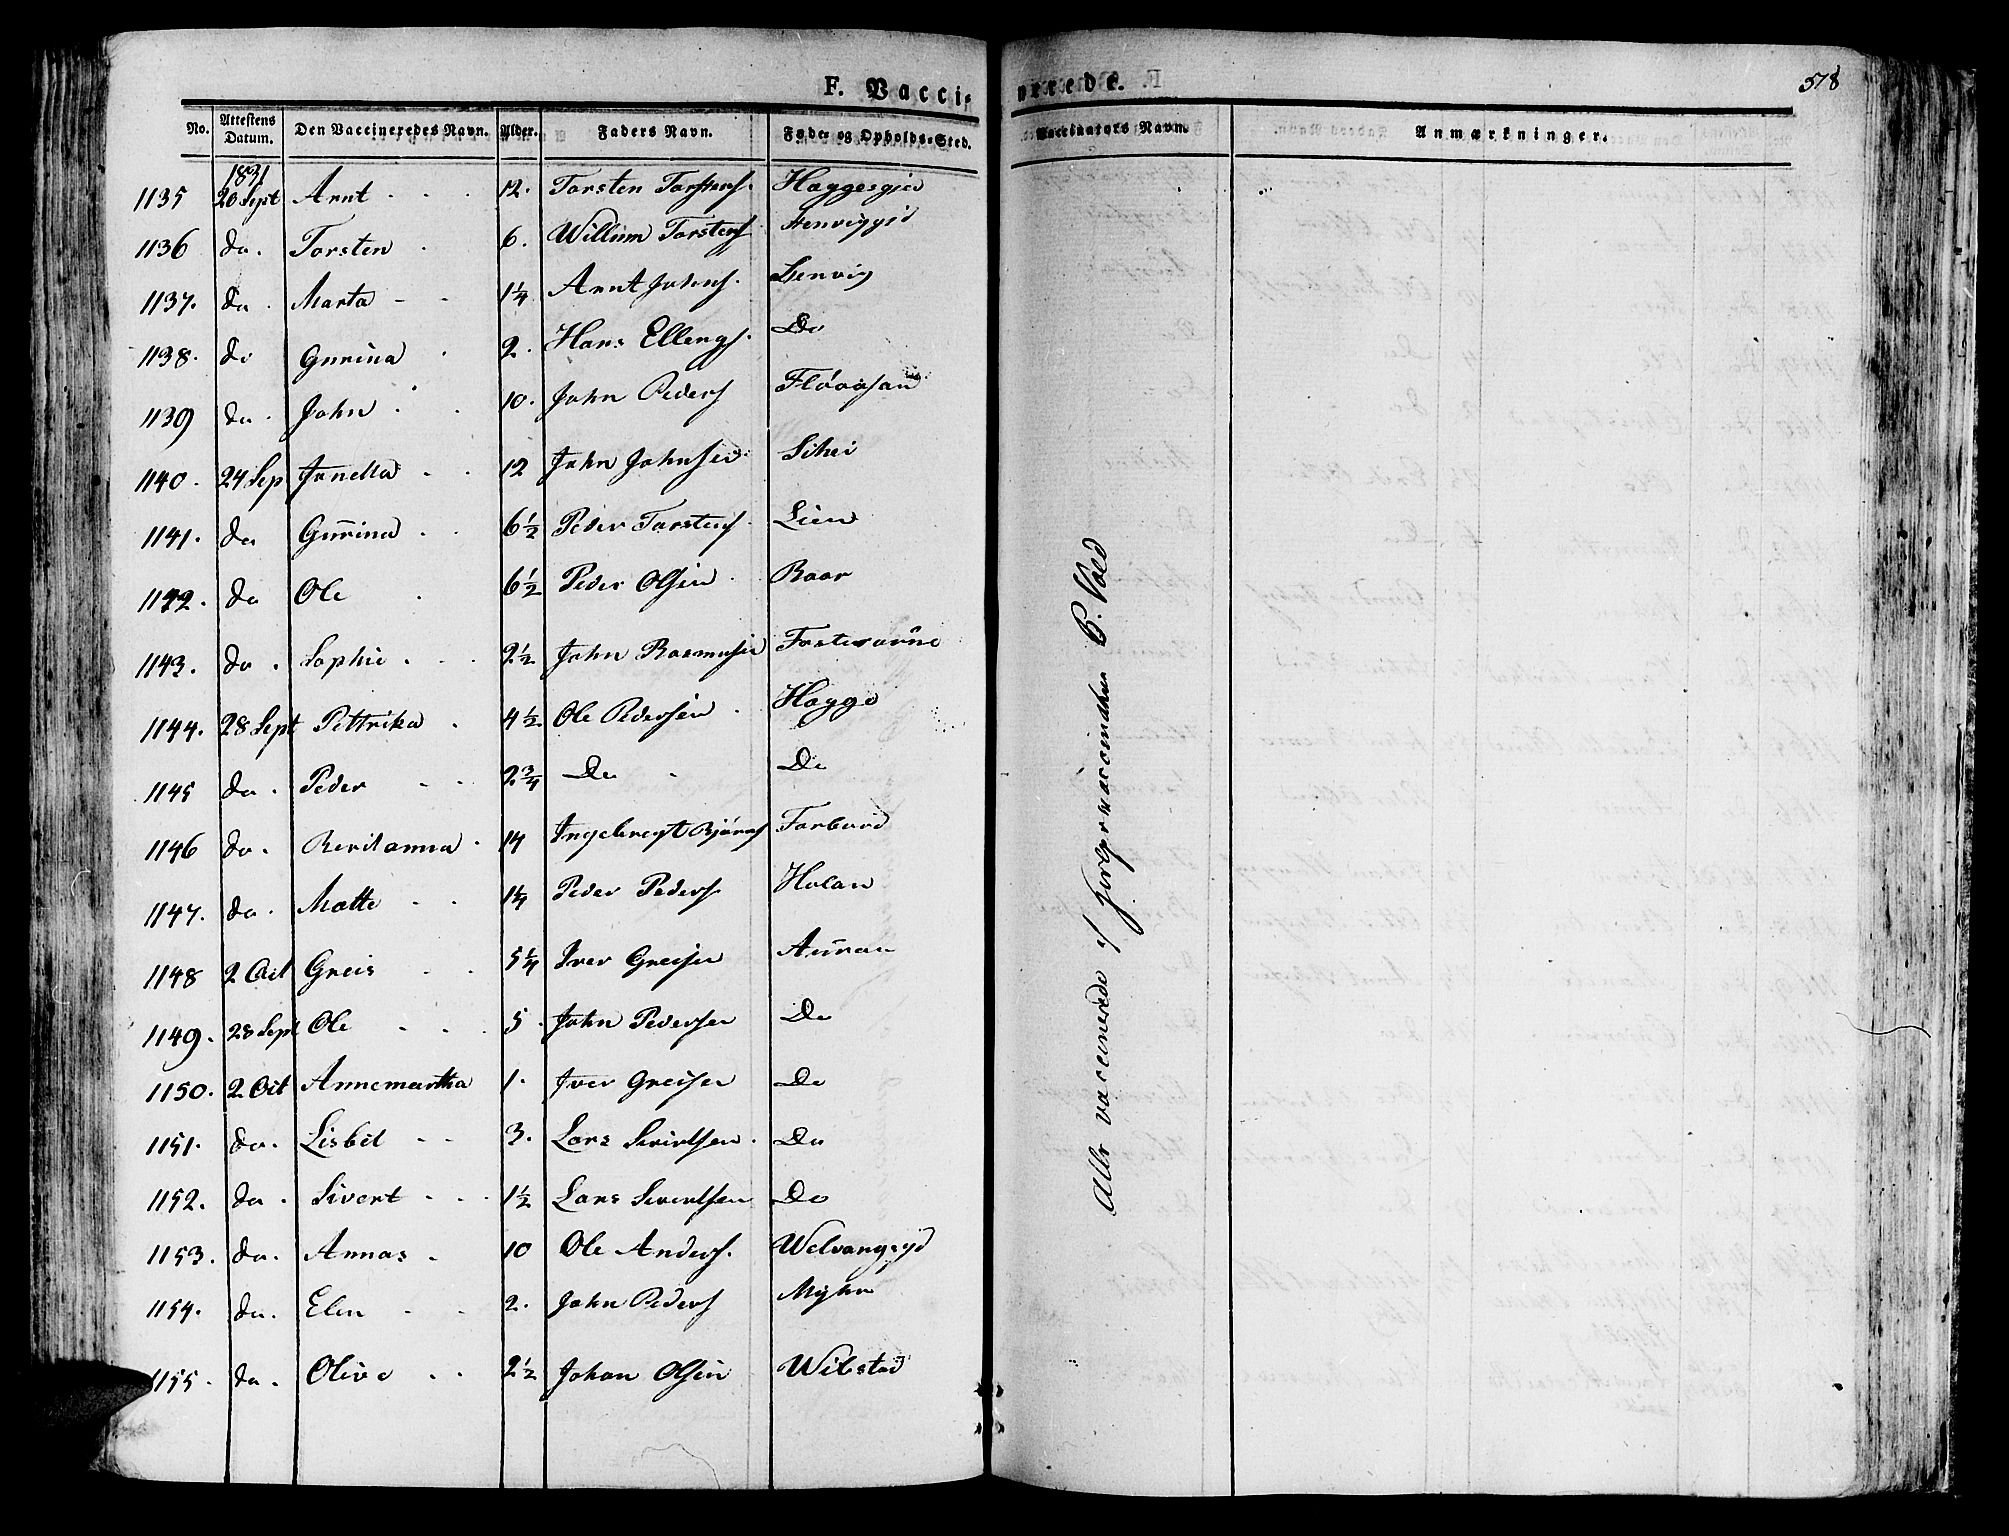 F. Vaccinerede.
578
No. Attestens Datum. Den Vaccineredes Navn. Alder. Faders Navn. Føde og Opholds-Sted. Vaccinators Navn. Anmærkninger.
1831
1135 20 Sept Arnt 12. Torsten Torstens. Haggesgied
1136 do. Torsten 6. Willum Torstens Stenviggid
1137. do. Marta 1¼ Arnt Johns. Stenvig
1138. do Gurina 2. Hans Ellengs. Do
1139 do. John 10. John Peders
1140. 24 Sep Janetta 12 John Johnsen
1141. do Gurina 6½ Peder Torstens. Lien
1142. do Ole 6½ Peder Olsen Roar
1143. do. Sophie 2½ John Rasmusen
1144. 28 Sept Pettrika 4½. Ole Pedersen Hagge
1145 do. Peder 2¾ Do Do
1146 do. Beritanna 14 Ingebregt Bjørns Forbord
1147. do. Mette 1¼ Peder Peders. Holan
1148 2 Oct Greis 5¼ Iver Greisen Auran
1149. 28 Sept Ole 5. John Pedersen Do
1150. 2 Oct Annemartha 1. Iver Greisen Do
1151. do. Lisbet 3. Lars Sivertsen. Do
1152. do. Sivert 1½ Lars Sivertsen Do
1153. do. Annas 10 Ole Anders. Welvangsgd
1154. do. Elen 2. John Peders Myhr
1155. do. Olive 2½ Johan Olsen Wibstad
Alle vaccinerede af B. Vold